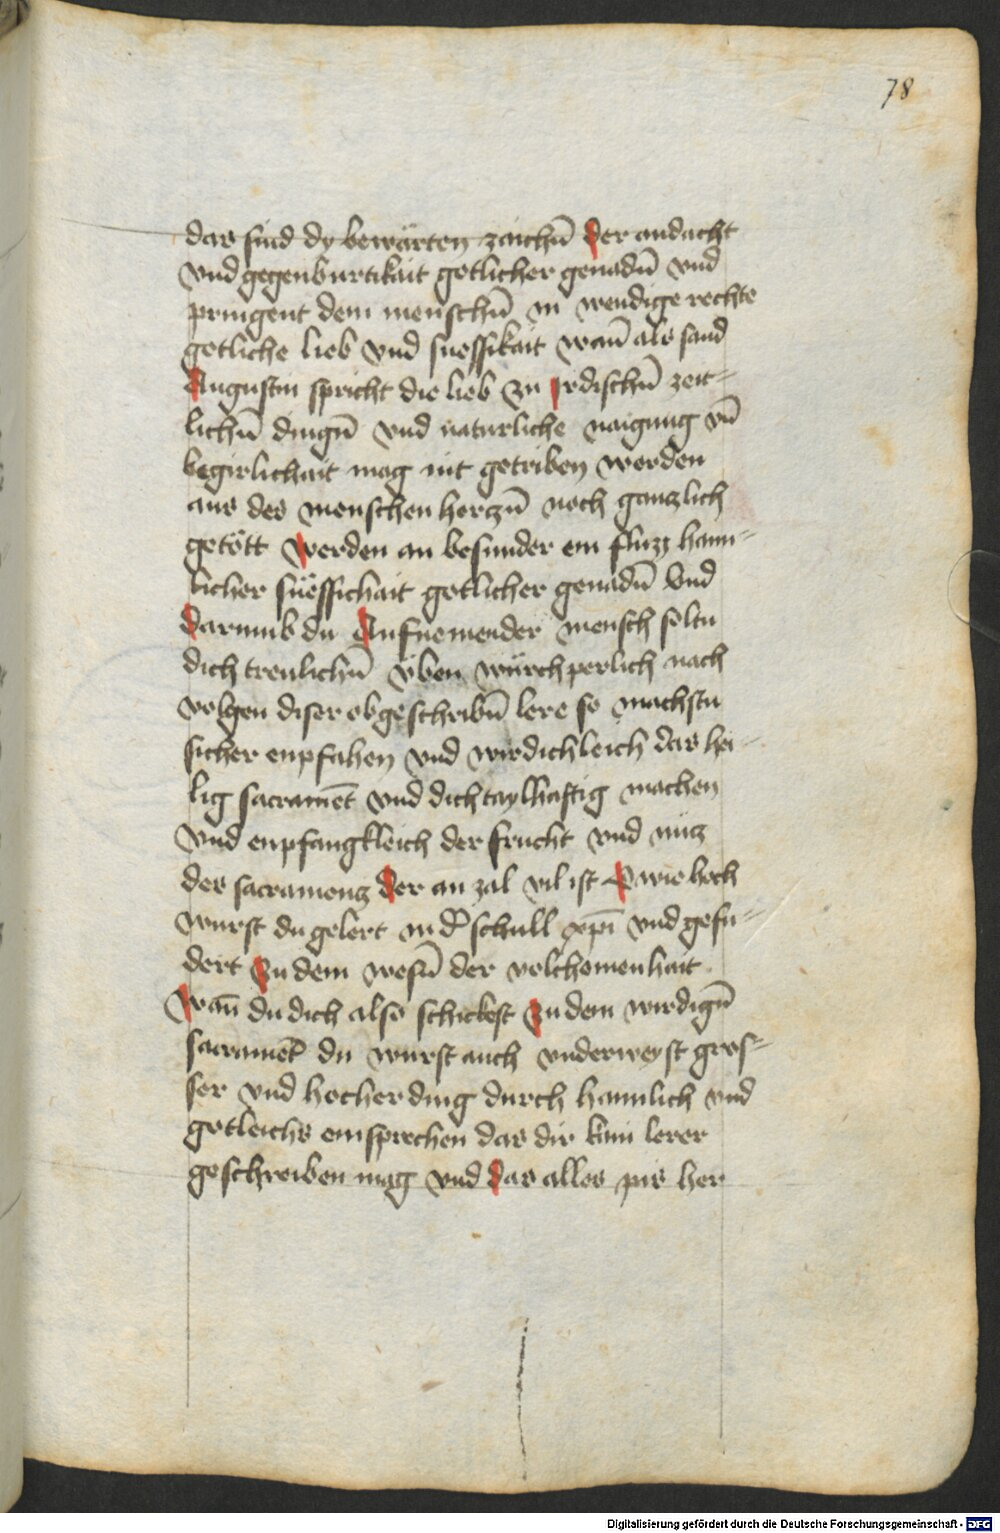 78
das sind dy bewärten zaichn̄ der andacht
vnd gegenburtikait gotlicher genadn̄ vnd
pringent dem menschn̄ in wendige rechte
gotliche lieb vnd suessikait wan̄ als sand
Augustin spricht die lieb zu irdischn̄ zeit=
lichn̄ dingn̄ vnd naturliche naigung vn̄
begirlichait mag nit getriben werden
aus des menschen herczn̄ noch ganczlich
getött werden an besunder ein fluzz haim=
licher süessichait gotlicher genadn̄ Vnd
darumb du Aufnemender mensch soltu
dich trewlichn̄ üben würchperlich nach
volgen diser obgeschribn̄ lere so machstu
sicher enpfahen vnd wirdichleich das hei=
lig sacramēt vnd dich taylhaftig machen
vnd enpfangkleich der frucht vnd nücz
des sacramencz der an zal vil ist O wie hoch
wurst du gelert in d̄ schull xp̄i vnd gefu=
dert zu dem wesn̄ der volchomenhait
Wan̄ du dich also schickest zu dem wirdign̄
sacramēt du wurst auch vnderweyst gros=
ser vnd hocher ding durch haimlich vnd
gotleichs einsprechen das dir kain lerer
geschreiben mag vnd das alles pis her
Digitalisierung gefördert durch die Deutsche Forschungsgemeinschaft - DFG